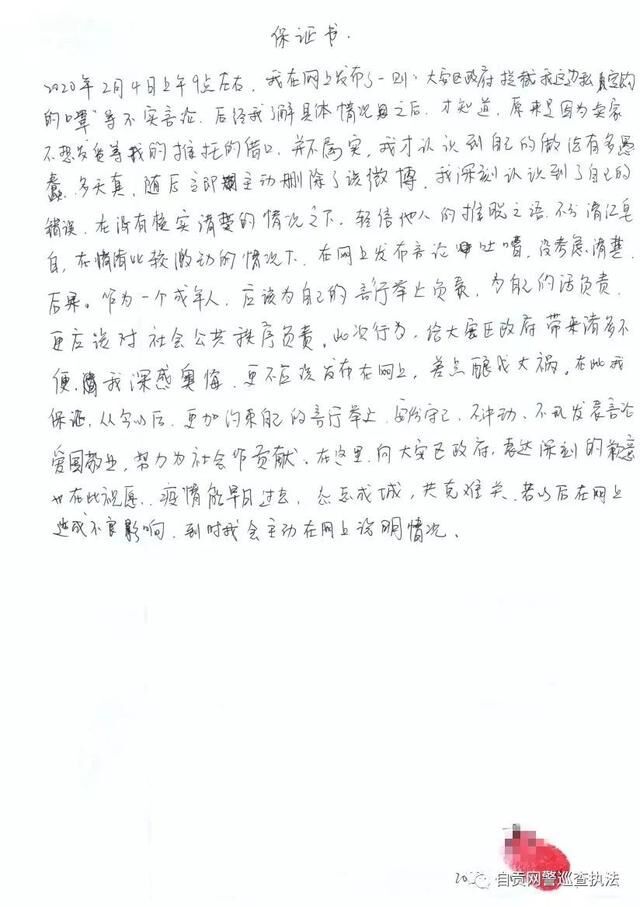 保证书.
2020年2月4日上午9点左右，我在网上发布了一则：大安区政府拦截我这边私自定购
的口罩等不实言论，后经我了解具体情况之后，才知道，原来是因为卖家
不想发货等我的推托的借口，并不属实，我才认识到自己的做法有多愚
蠢，多天真，随后立即主动删除了该微博，我深刻认识到了自己的
错误，在没有核实清楚的情况之下，轻信他人的推脱之语，不分清红皂
白，在情绪比较激动的情况下，在网上发布言论吐嘈，没考虑清楚
后果。作为一个成年人，应该为自己的言行举止负责，为自己的话负责，
更应该对社会公共秩序负责。此次行为，给大安区政府带来诸多不
便，我深感奥悔，更不应该发布在网上，差点酿成大祸。在此我
保证，从今以后，更加约束自己的言行举止，安份守己，不冲动，不乱发表言论
爱国敬业，努力为社会作贡献。在这里，向大安区政府，表达深刻的歉意
也在此祝愿，疫情能早日过去，众志成城，共克难关，若以后在网上
造成不良影响，到时我会主动在网上说明情况。
202
自贡网警巡查执法